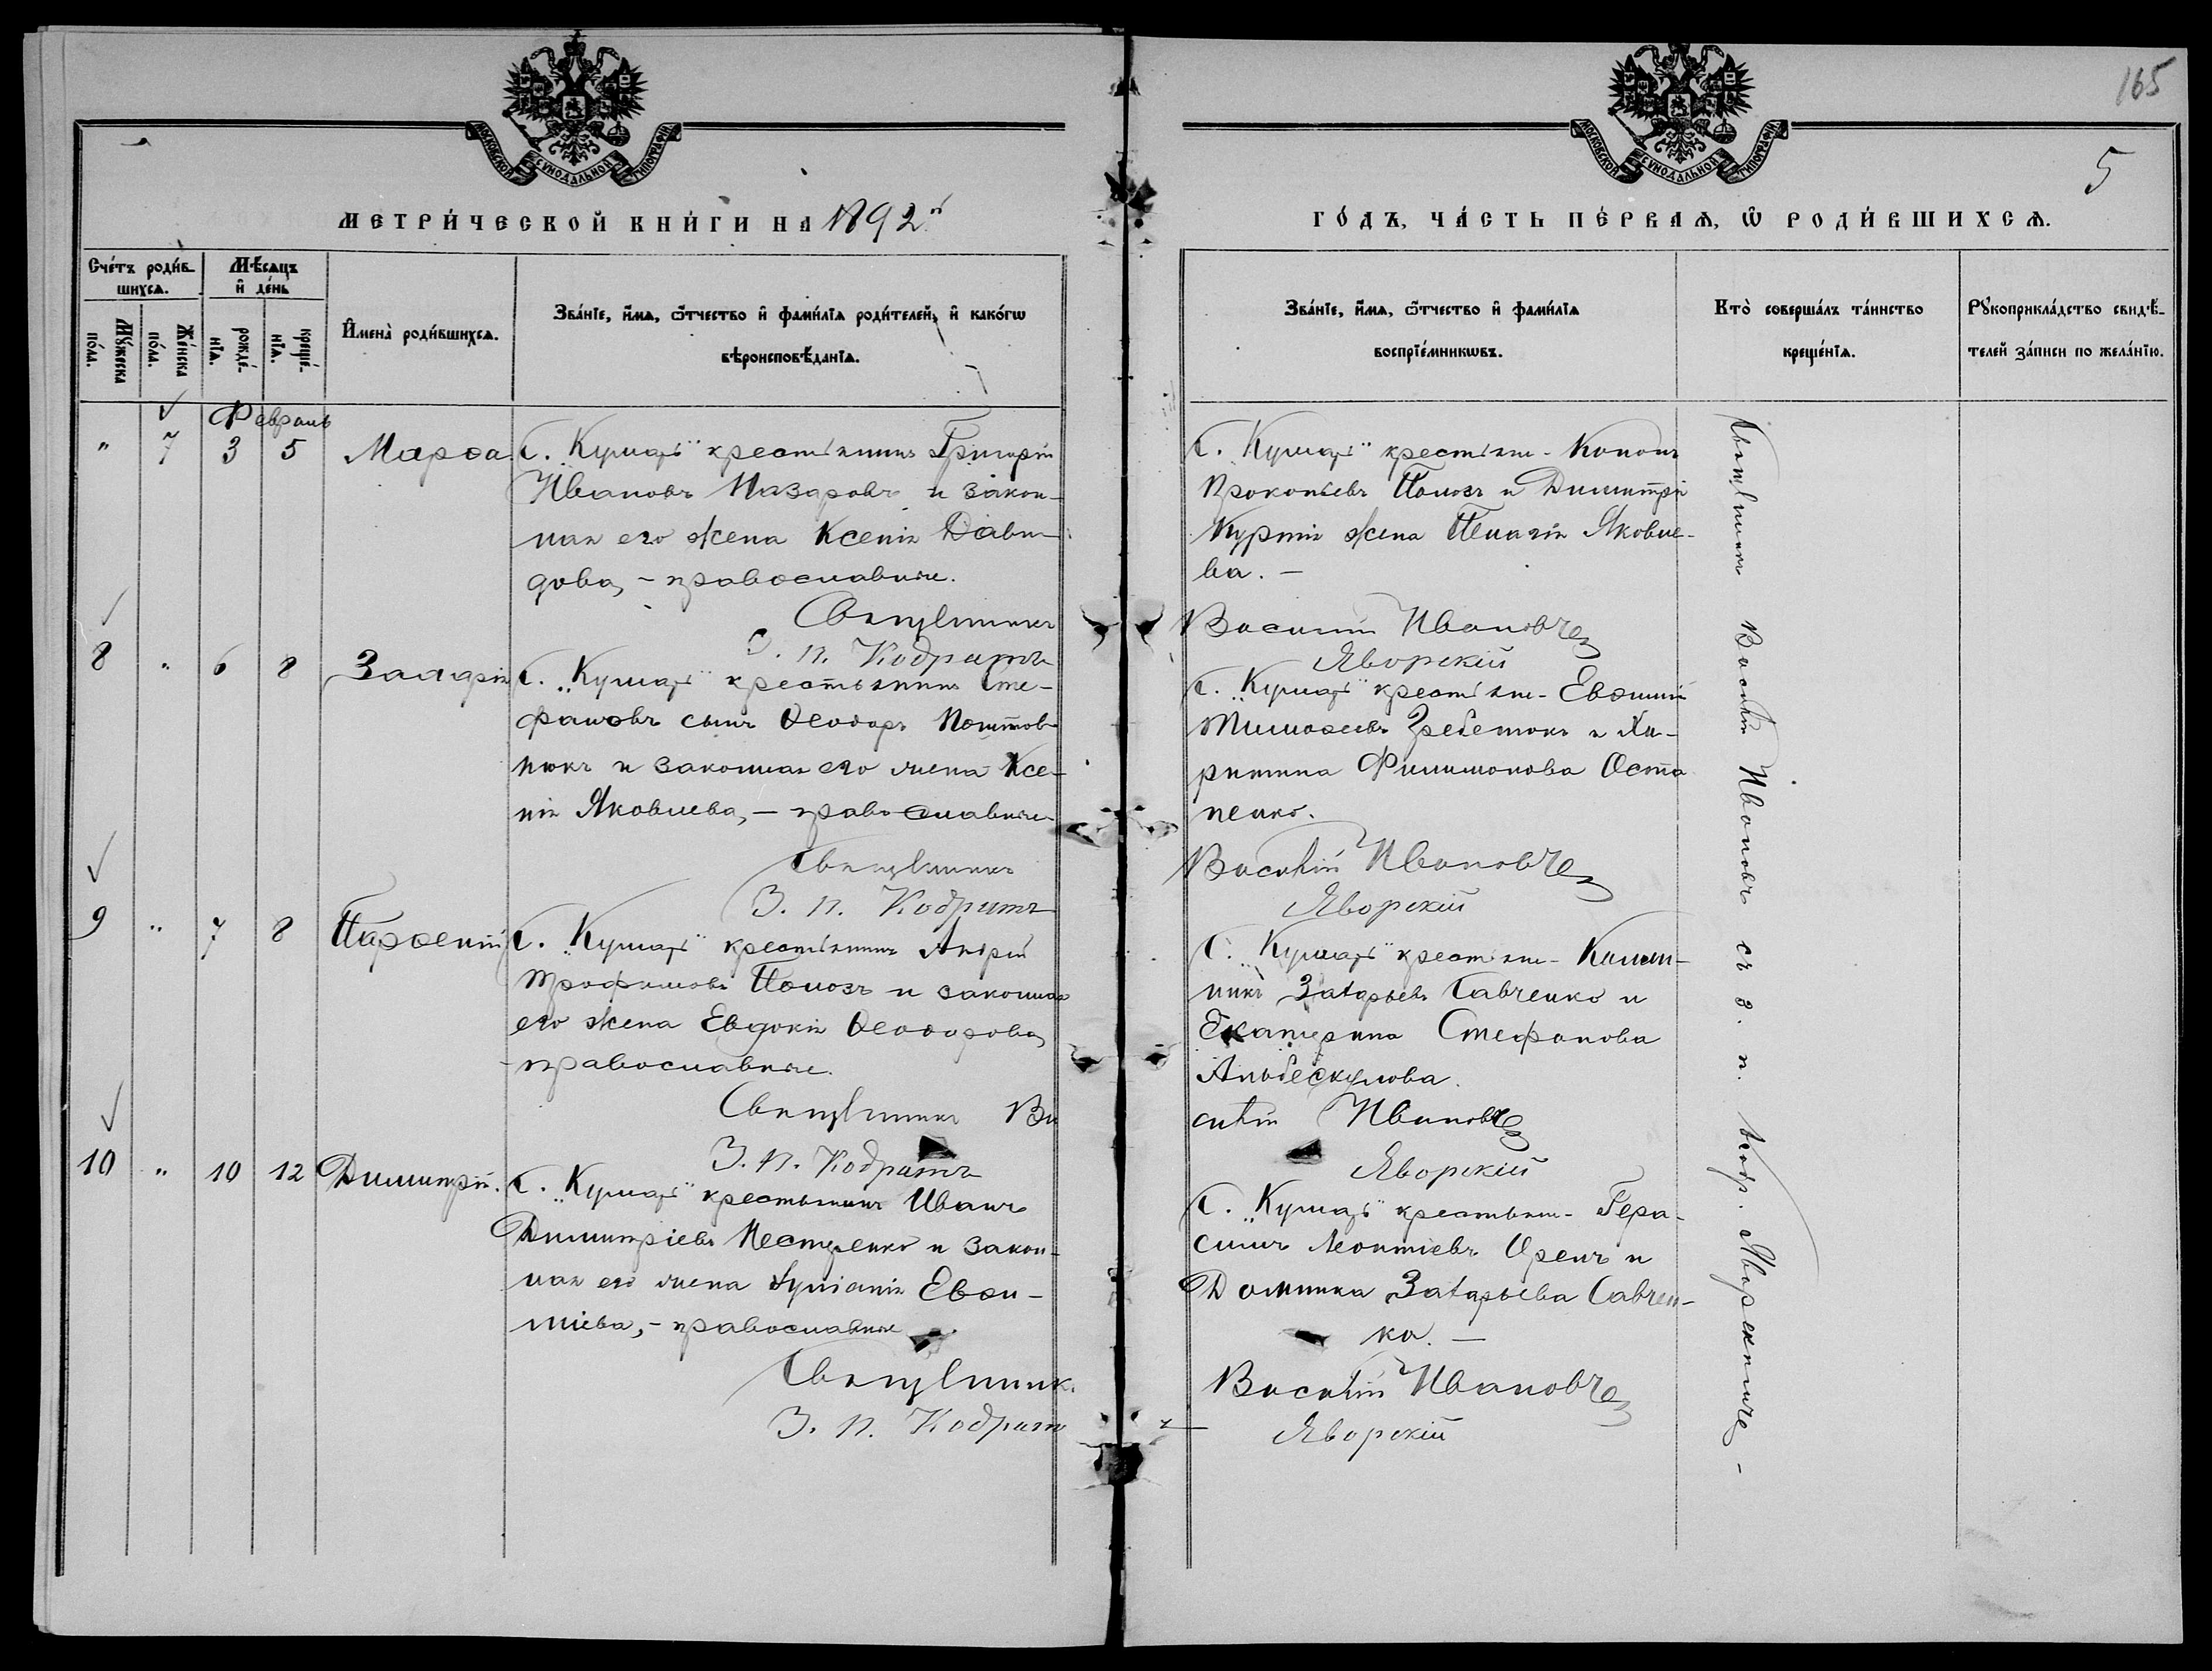 165
5
МОСКОВСКОЙ СѴНОДАЛЬНОЙ ТИПОГРАФІИ
МОСКОВСКОЙ СѴНОДАЛЬНОЙ ТИПОГРАФІИ
МЕТРИ́ЧЕСКОЙ КНИ́ГИ НА 1892й
ГО́ДЪ, ЧА́СТЬ ПЕ́РВАѦ, Ѡ҆ РОДИ́ВШИХСѦ.
Сче́тъ роди́в-
шихсѧ.
Мꙋ́жеска по́ла.
Же́нска по́ла.
Мѣ́сѧцъ
и҆ де́нь
рожде́-нїѧ.
креще́-нїѧ.
И҆мена̀ роди́вшихсѧ.
Зва́нїе, и҆́мѧ, ѻ҆́тчество и҆ фами́лїѧ роди́телей, и҆ како́гѡ
вѣроисповѣ́данїѧ.
Зва́нїе, и҆́мѧ, ѻ҆́тчество и҆ фами́лїѧ
воспрїе́мникѡвъ.
Кто̀ соверша́лъ та́инство
креще́нїѧ.
Рꙋкоприкла́дство свидѣ́-
телей за́писи по жела́нїю.
Февраль
" 7 3 5 Марѳа
С. „Кумарѣ" крестьянинъ Григорій
Ивановъ Назаровъ и закон-
ная его жена Ксенія Дави-
дова, - православные.
Священникъ
З. п. Кодратъ
С. „Кумарѣ" крестьяне - Кононъ
Прокопьевъ Помозъ и Димитрія
жена Пелагія Яковле-
ва. -
Василій Ивановъ
Яворскій
8 " 6 8
С. „Кумарѣ" крестьянинъ Сте-
фановъ сынъ Ѳеодоръ
и законная его жена Ксе-
нія Яковлева, - православные
Священникъ
З. п. Кодратъ
С. „Кумарѣ" крестьяне - Евѳимій
Тимоѳеевъ Гребенюкъ и Ха-
ритина Филимонова Оста
пенко.
Василій Ивановъ
Яворскій
9 " 7 8 Парѳеній
С. „Кумарѣ" крестьянинъ Андрей
Трофимовъ Помозъ и законная
его жена Евдокія Ѳеодорова,
- православные.
Священникъ Ва
З. п. Кодратъ
С. „Кумарѣ" крестьяне - Калин-
никъ Захарьевъ Савченко и
Екатерина Стефанова
силій Ивановъ
Яворскій
10 " 10 12 Димитрій.
С. „Кумарѣ" крестьянинъ Иванъ
Димитріевъ Нестеренко и закон-
ная его жена Іуліанія Евѳи-
міева, - православные
Священник.
З. п. Кодрат
С. „Кумарѣ" крестьяне - Гера-
симъ Леонтіевъ и
Домника Захарьева Савчен-
ко. -
Василій Ивановъ
Яворскій
Священникъ Василій Ивановъ съ з. п. Кодр. Яворскимъ -